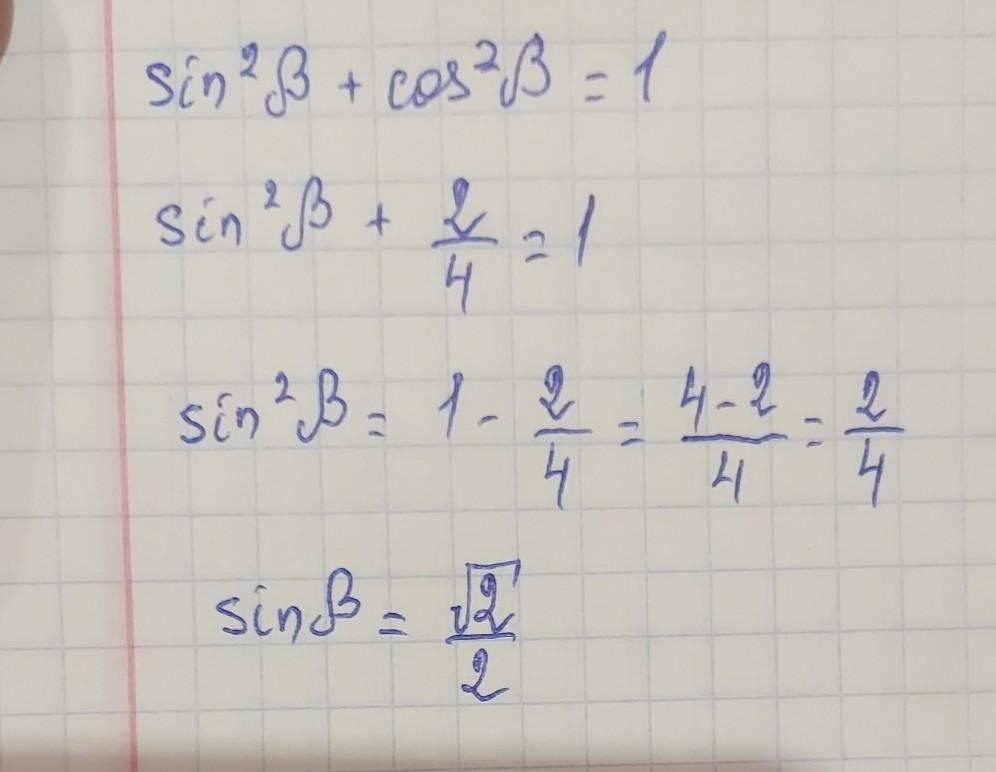 sin²β + cos²β = 1
sin²β + 2/4 = 1
sin²β = 1 - 2/4 = (4-2)/4 = 2/4
sinβ = √2/2